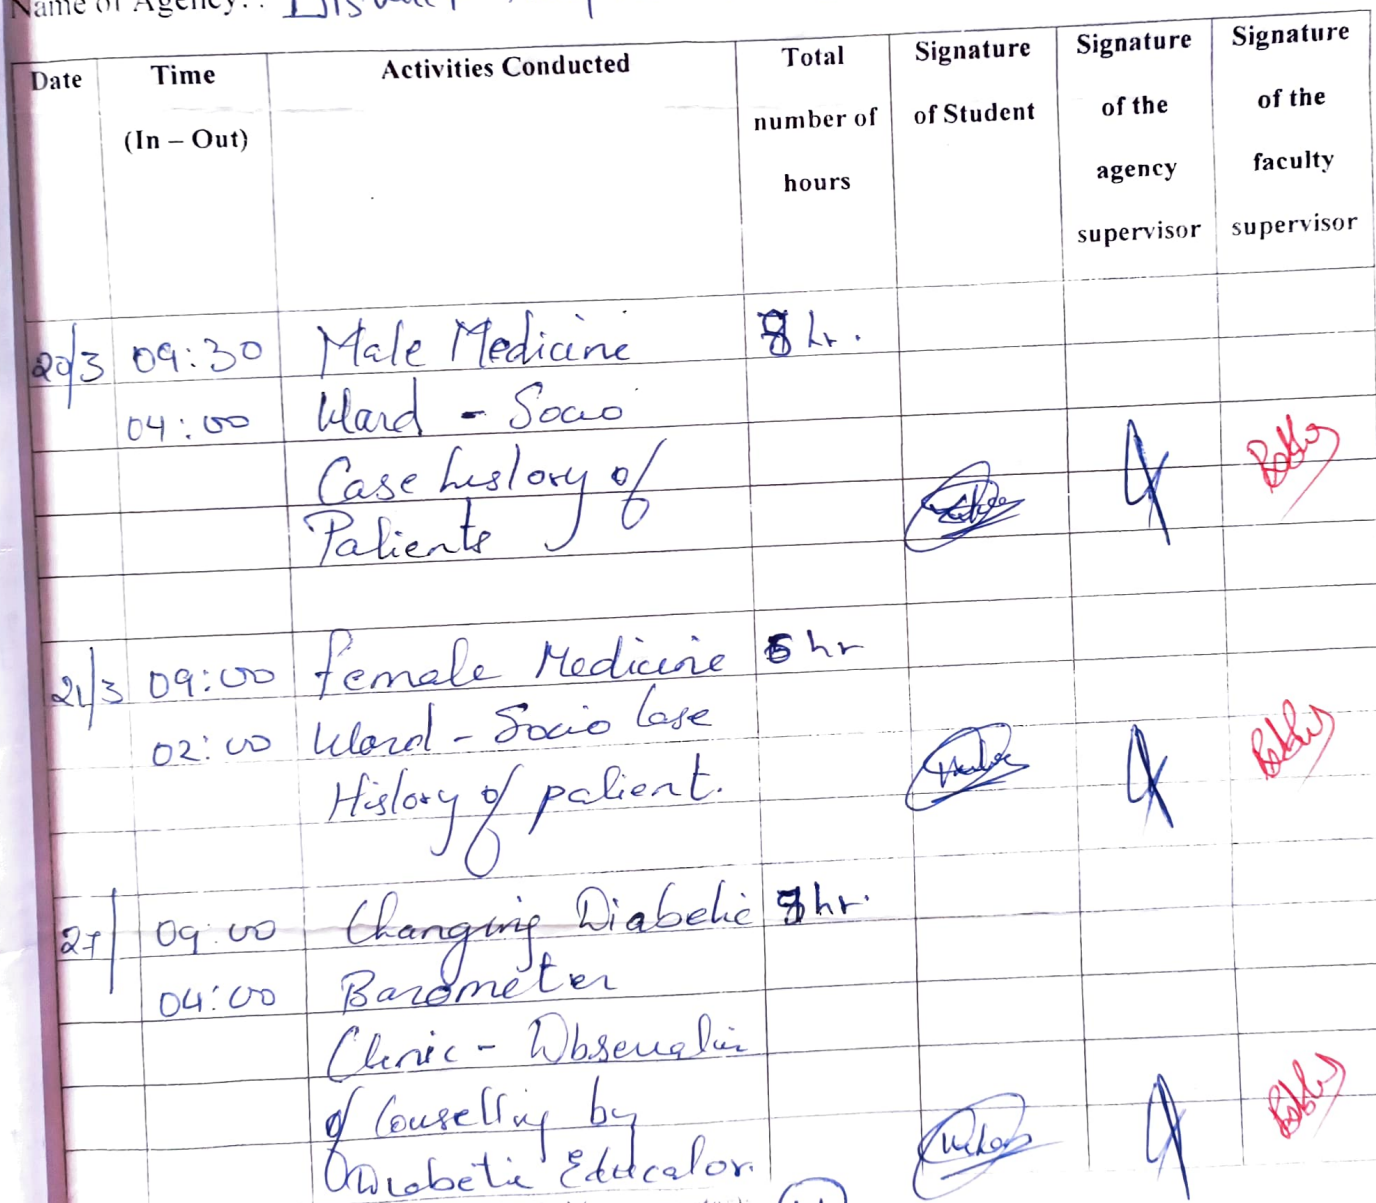 Name of Agency: :
Date
Time
(In – Out)
Activities Conducted
Total
number of
hours
Signature
of Student
Signature
of the
agency
supervisor
Signature
of the
faculty
supervisor
20/3 09:30 Male Medicine hr.
04:00 Ward - Socio
Case history of
Patients
21/3 09:00 female Medicine hr
02:00 Ward - Socio Case
History of patient.
27/ 09:00 Changing Diabetic hr.
04:00 Barometer
Clinic - Observation
of Couselling by
Diabetic Educator.